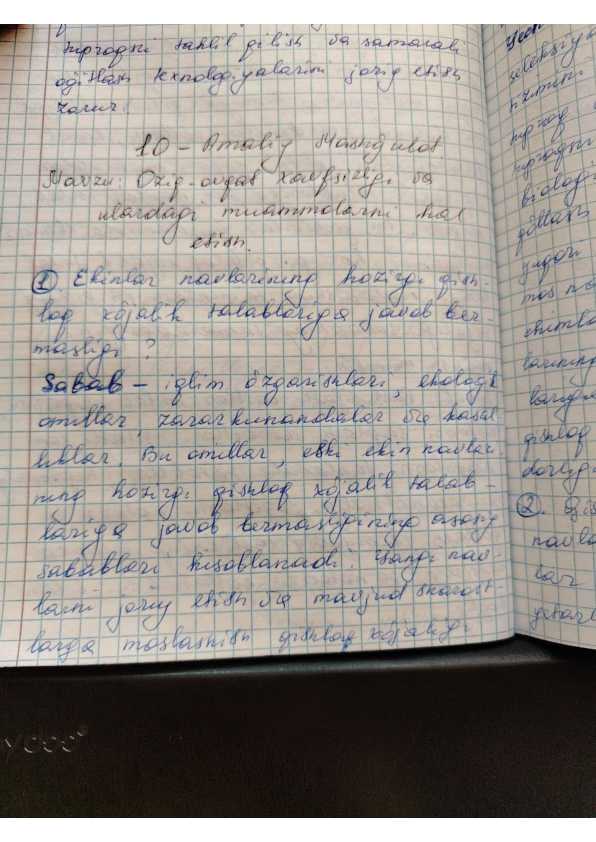 tuproqni tahlil qilish va samarali
o'g'itlash texnologiyalarini joriy etish
zarur.
10 - Amaliy Mashg'ulot
Mavzu: Oziq-ovqat xavfsizligi va
ulardagi muammolarni hal
etish.
1. Ekinlar navlarining hozirgi qish-
loq xo'jalik talablariga javob ber-
masligi?
Sabab - iqlim o'zgarishlari, ekologik
omillar, zararkunandalar va kasal-
liklar. Bu omillar, eski ekin navlari-
ning hozirgi qishloq xo'jalik talab-
lariga javob bermasligining asosiy
sabablari hisoblanadi. Yangi nav-
larni joriy etish va mavjud sharoit-
larga moslashish qishloq xo'jaligi
seleksiya
tizimini
tuproq
tuproqni
biologi
qillash
yuqori
mos na
ekinla
larining
lariga
qishloq
dorligi
2.
navla
lar
yetarl